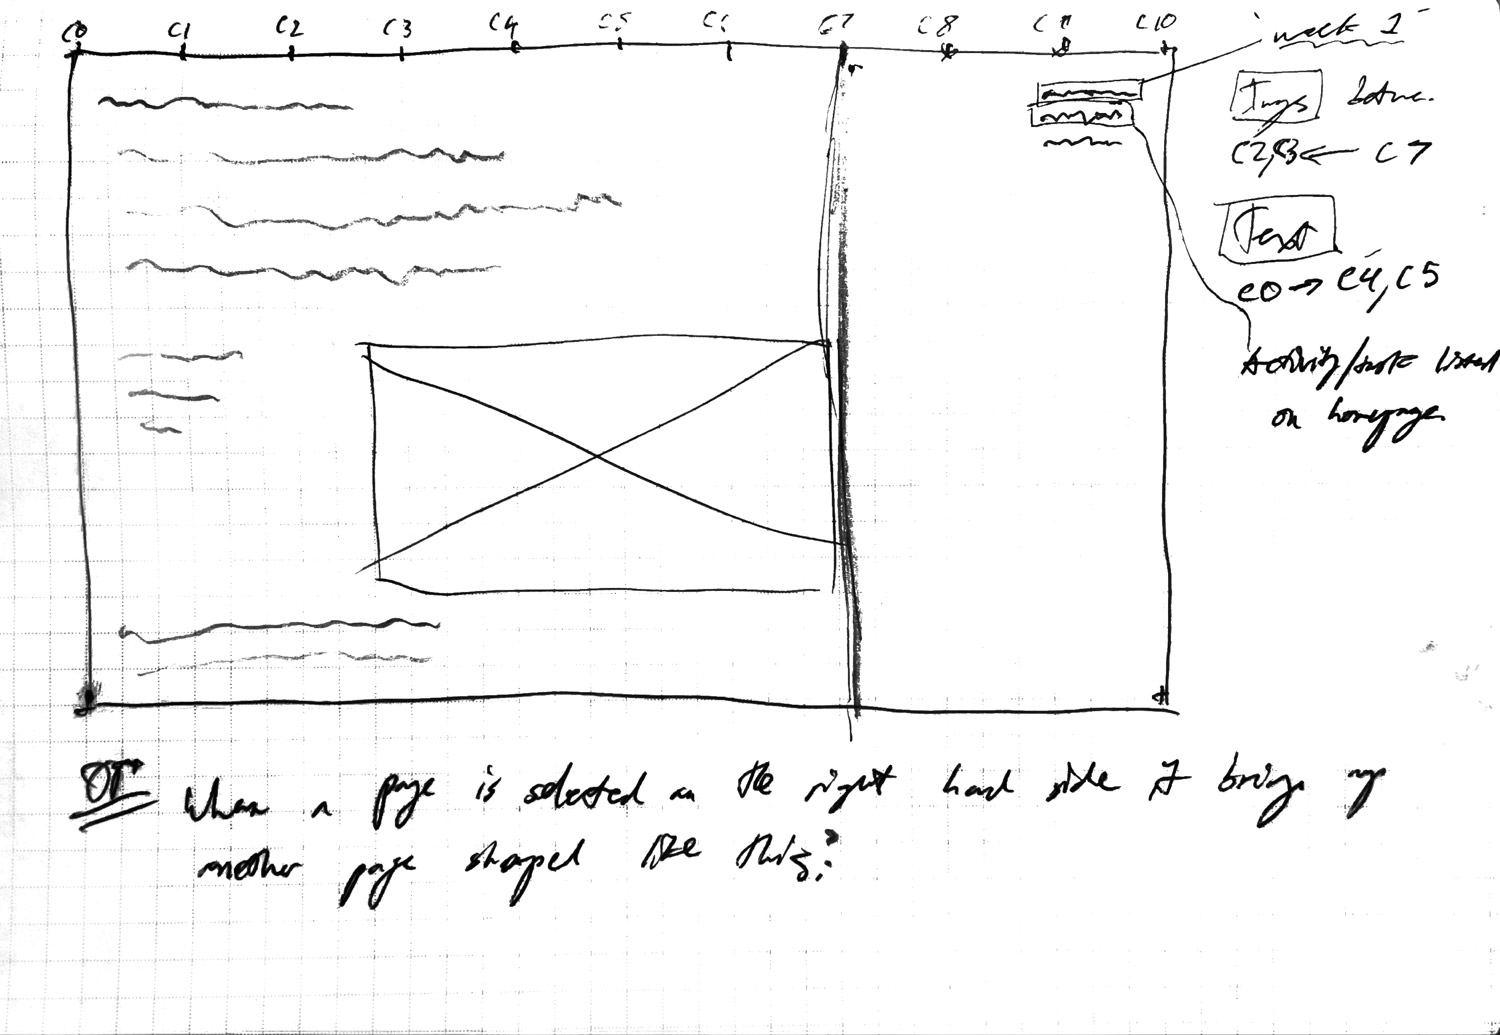 C0 C1 C2 C3 C4 C5 C6 C7 C8 C9 C10
week 1
Imgs
C2,C3 ← C7
Text
C0 → C4, C5
Activity/task listed
on homepage
OR When a page is selected on the right hand side it brings up
another page shaped like this?